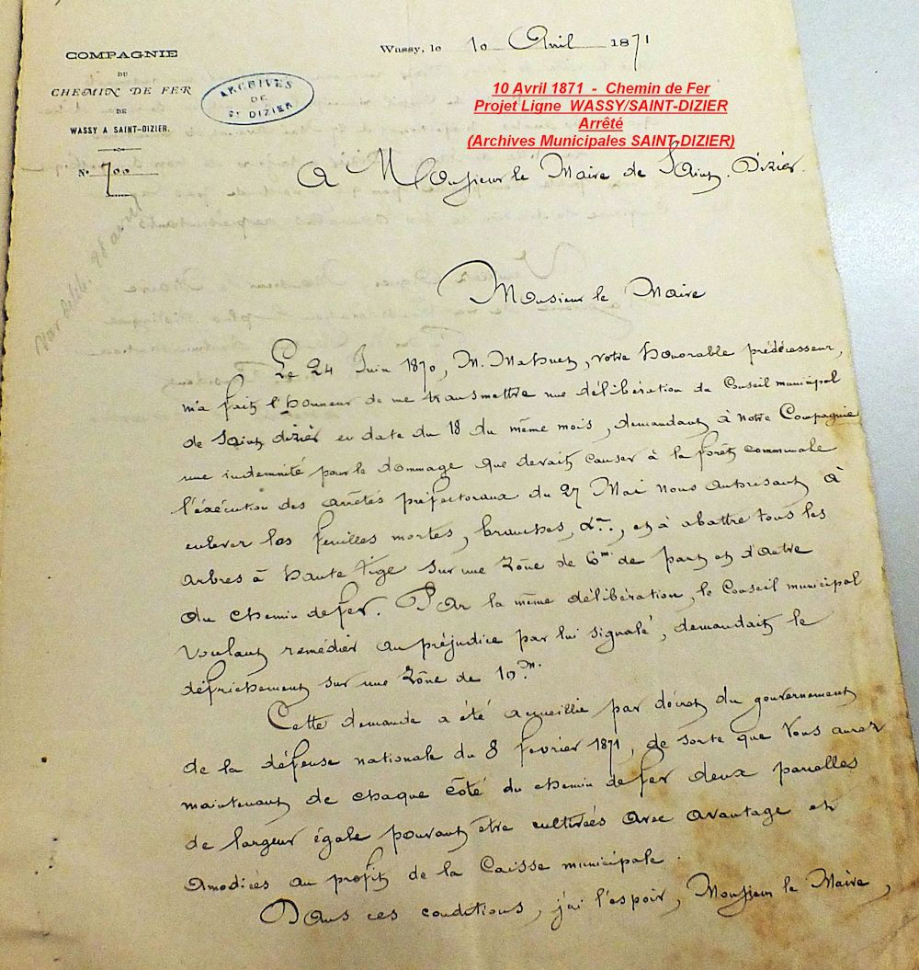 COMPAGNIE
DU
CHEMIN DE FER
DE
WASSY A SAINT-DIZIER.
No 700
ARCHIVES
DE
St DIZIER
Wassy, le 10 Avril 1871
10 Avril 1871 - Chemin de Fer
Projet Ligne WASSY/SAINT-DIZIER
Arrêté
(Archives Municipales SAINT-DIZIER)
A Monsieur le Maire de Saint Dizier.
Monsieur le Maire
Le 24 Juin 1870, M. Mahuet, votre honorable prédécesseur,
m'a fait l'honneur de me transmettre une délibération du Conseil municipal
de Saint dizier en date du 18 du même mois, demandant à notre Compagnie
une indemnité pour le dommage que devait causer à la forêt communale
l'éxécution des arrêtés préfectoraux du 27 Mai nous autorisant à
enlever les feuilles mortes, branches, &a., et à abattre tous les
arbres à haute tige sur une Zône de 6m de part et d'autre
du chemin de fer. Par la même délibération, le Conseil municipal
voulant remédier au préjudice par lui signalé, demandait le
défrichement sur une Zône de 10m.
Cette demande a été accueillie par décret du gouvernement
de la défense nationale du 8 fevrier 1871, de sorte que vous aurez
maintenant de chaque côté du chemin de fer deux parcelles
de largeur égale pouvant être cultivées avec avantage et
amodiées au profit de la Caisse municipale.
Dans ces conditions, j'ai l'espoir, Monsieur le Maire,